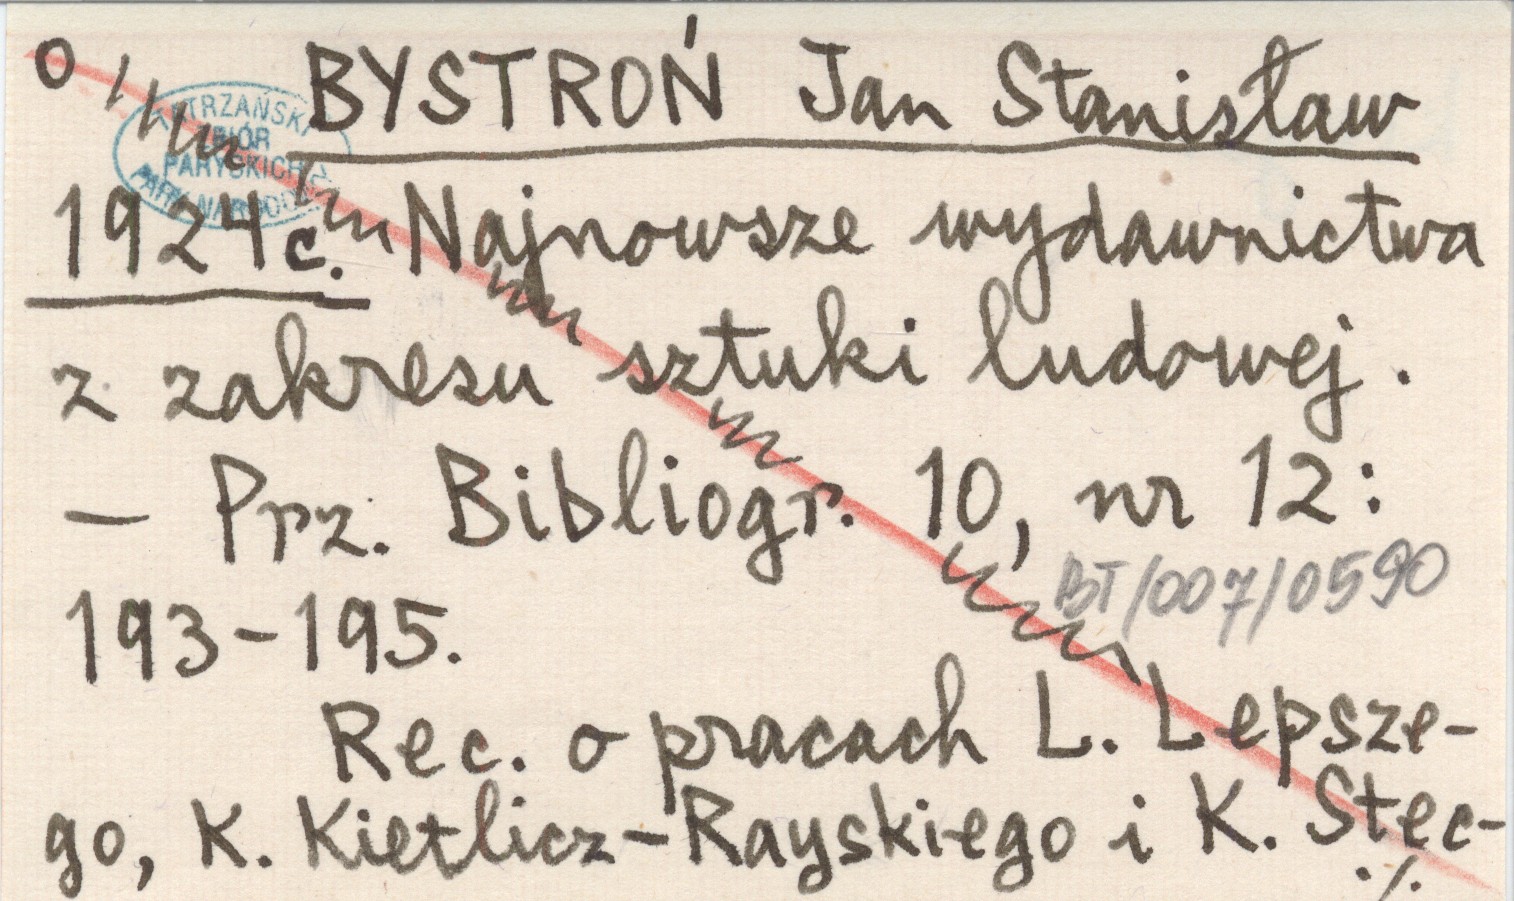 o BYSTROŃ Jan Stanisław
TATRZAŃSKI
ZBIÓR
PARYSKICH
PARK NARODOWY
1924c. Najnowsze wydawnictwa
z zakresu sztuki ludowej.
— Prz. Bibliogr. 10, nr 12:
BT/007/0590
193-195.
Rec. o pracach L. Lepsze-
go, K. Kietlicz-Rayskiego i K. Stec-
./.